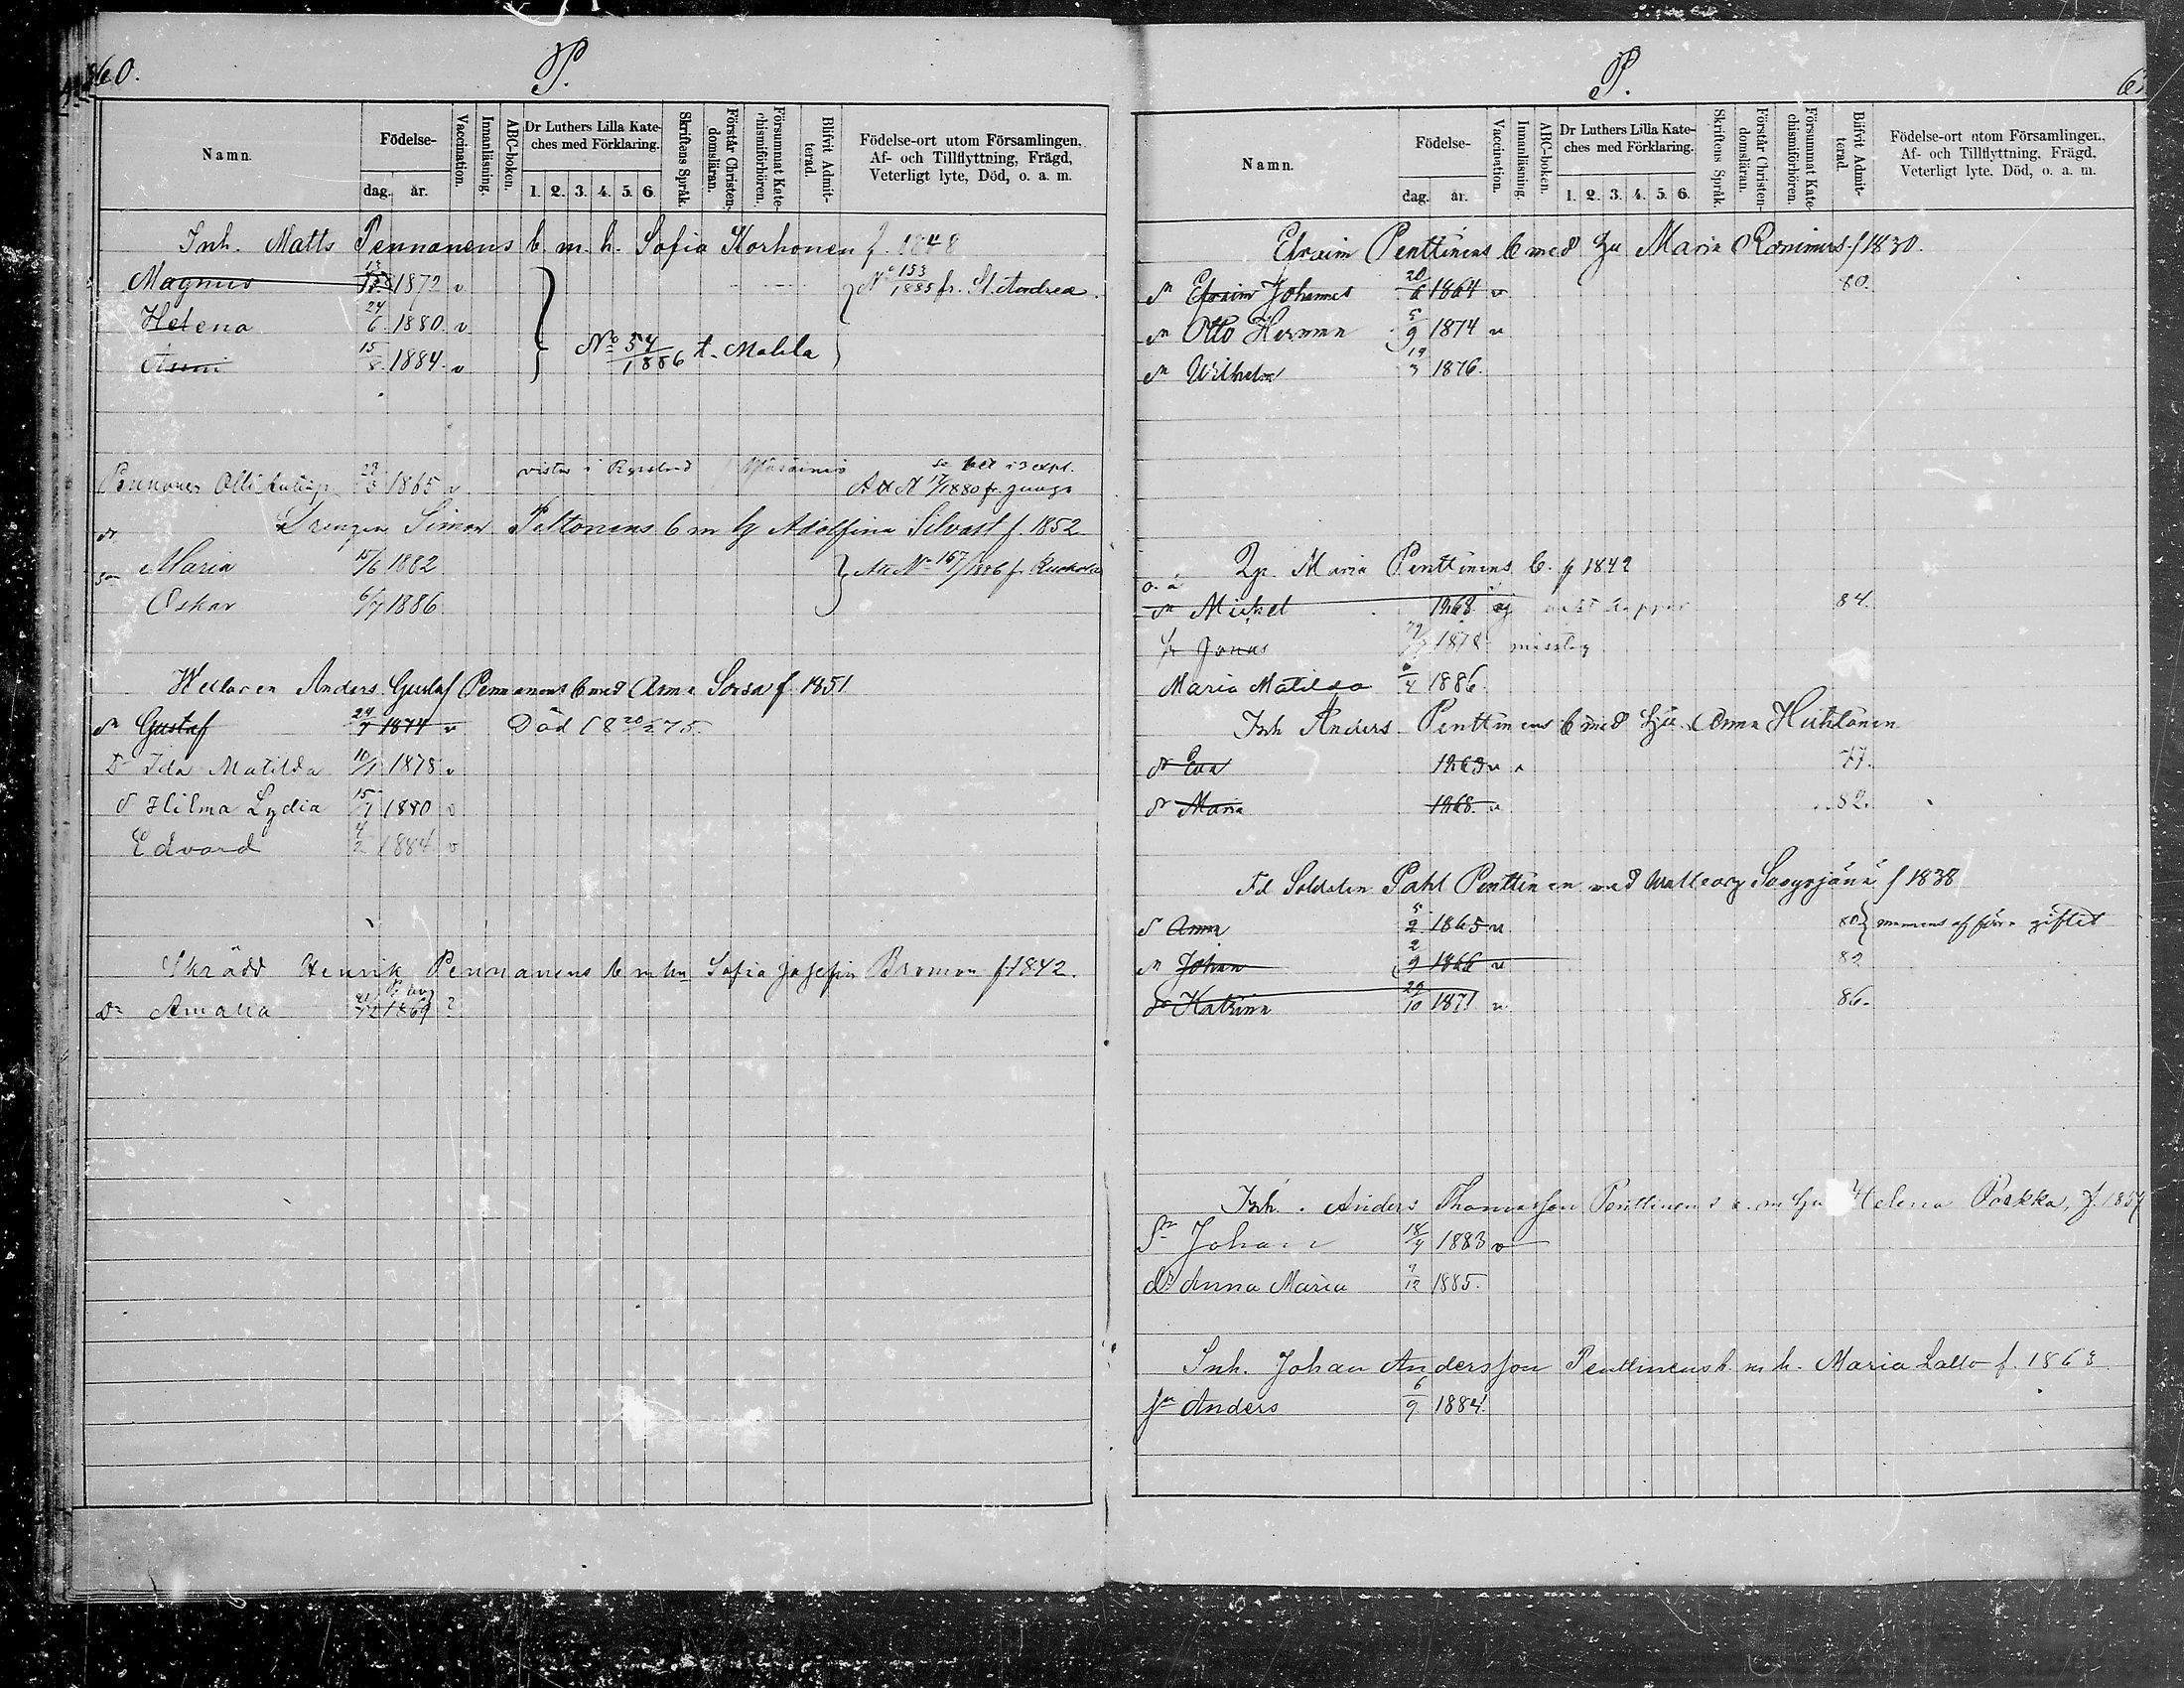 60.
P.
Namn.
Födelse-
dag. år.
Vaccination.
Innanläsning.
ABC-boken.
Dr Luthers Lilla Kate-
ches med Förklaring.
1. 2. 3. 4. 5. 6.
Skriftens Språk.
Förstår Christen-
domsläran.
Försummat Kate-
chismiförhören.
Blifvit Admit-
terad.
Födelse-ort utom Församlingen,
Af- och Tillflyttning, Frägd,
Veterligt lyte, Död, o. a. m.
Inh. Matts Pennanens b. m. h. Sofia Korhonen f. 1848
Magnus 1872 v No 153/1885 fr. St. Andrea.
Helena 24/6 1880. v
Anni 15/8 1884. v No 54/1886 t. Mohla
Pennonen Olli 1865 v vistas i Ryssland
Drengen Simon Peltonens b m h Adolfina Silvast f. 1852
Maria 15/6 1882 Att No 167/1886 f.
Oskar 6/7 1886
Anders Gustaf Pennanens b med Anna Sorsa f. 1851
sn Gustaf 24/7 1874 v Död 18 20/2 75.
Dr Ida Matilda 10/1 1878 v
d Hilma Lydia 15/7 1880 v
Edvard 4/2 1884 v
Skrädd Henrik Pennanens b m hu Sofia Josefin Broman f 1842.
Dr Amalia 21/12 1869 ?
P.
Namn.
Födelse-
dag. år.
Vaccination.
Innanläsning.
ABC-boken.
Dr Luthers Lilla Kate-
ches med Förklaring.
1. 2. 3. 4. 5. 6.
Skriftens Språk.
Förstår Christen-
domsläran.
Försummat Kate-
chismiförhören.
Blifvit Admit-
terad.
Födelse-ort utom Församlingen,
Af- och Tillflyttning, Frägd,
Veterligt lyte, Död, o. a. m.
Efraim Penttinens b med hu Maria f 1830.
sn Efraim Johannes 20/6 1864 v 80.
sn Otto Herman 5/9 1874 v
sn Wilhelm 19/3 1876.
Maria Penttinens b. f 1842
o. ä
sn Mickel 1868 ej 84.
Jonas 1878 misstag
Maria Matilda 1886.
Inh Anders Penttinens b med hu Anna Huhtanen
dr Eva 1863 v 77.
dr Maria 1868. v 82.
Fd Soldaten Pahl Penttinen med f 1838
d Anna 5/2 1865 v giftet
sn Johan 2/9 1866 v 82
dr Katrina 29/10 1871 v 86.
Inh. Anders Thomasson Penttinens b. m hu Helena Pakka, f.
Sn Johan 18/4 1883 v
dr Anna Maria 9/12 1885.
Inh. Johan Andersson Penttinens b. m h. Maria Latto f. 1863
sn Anders 6/9 1884.